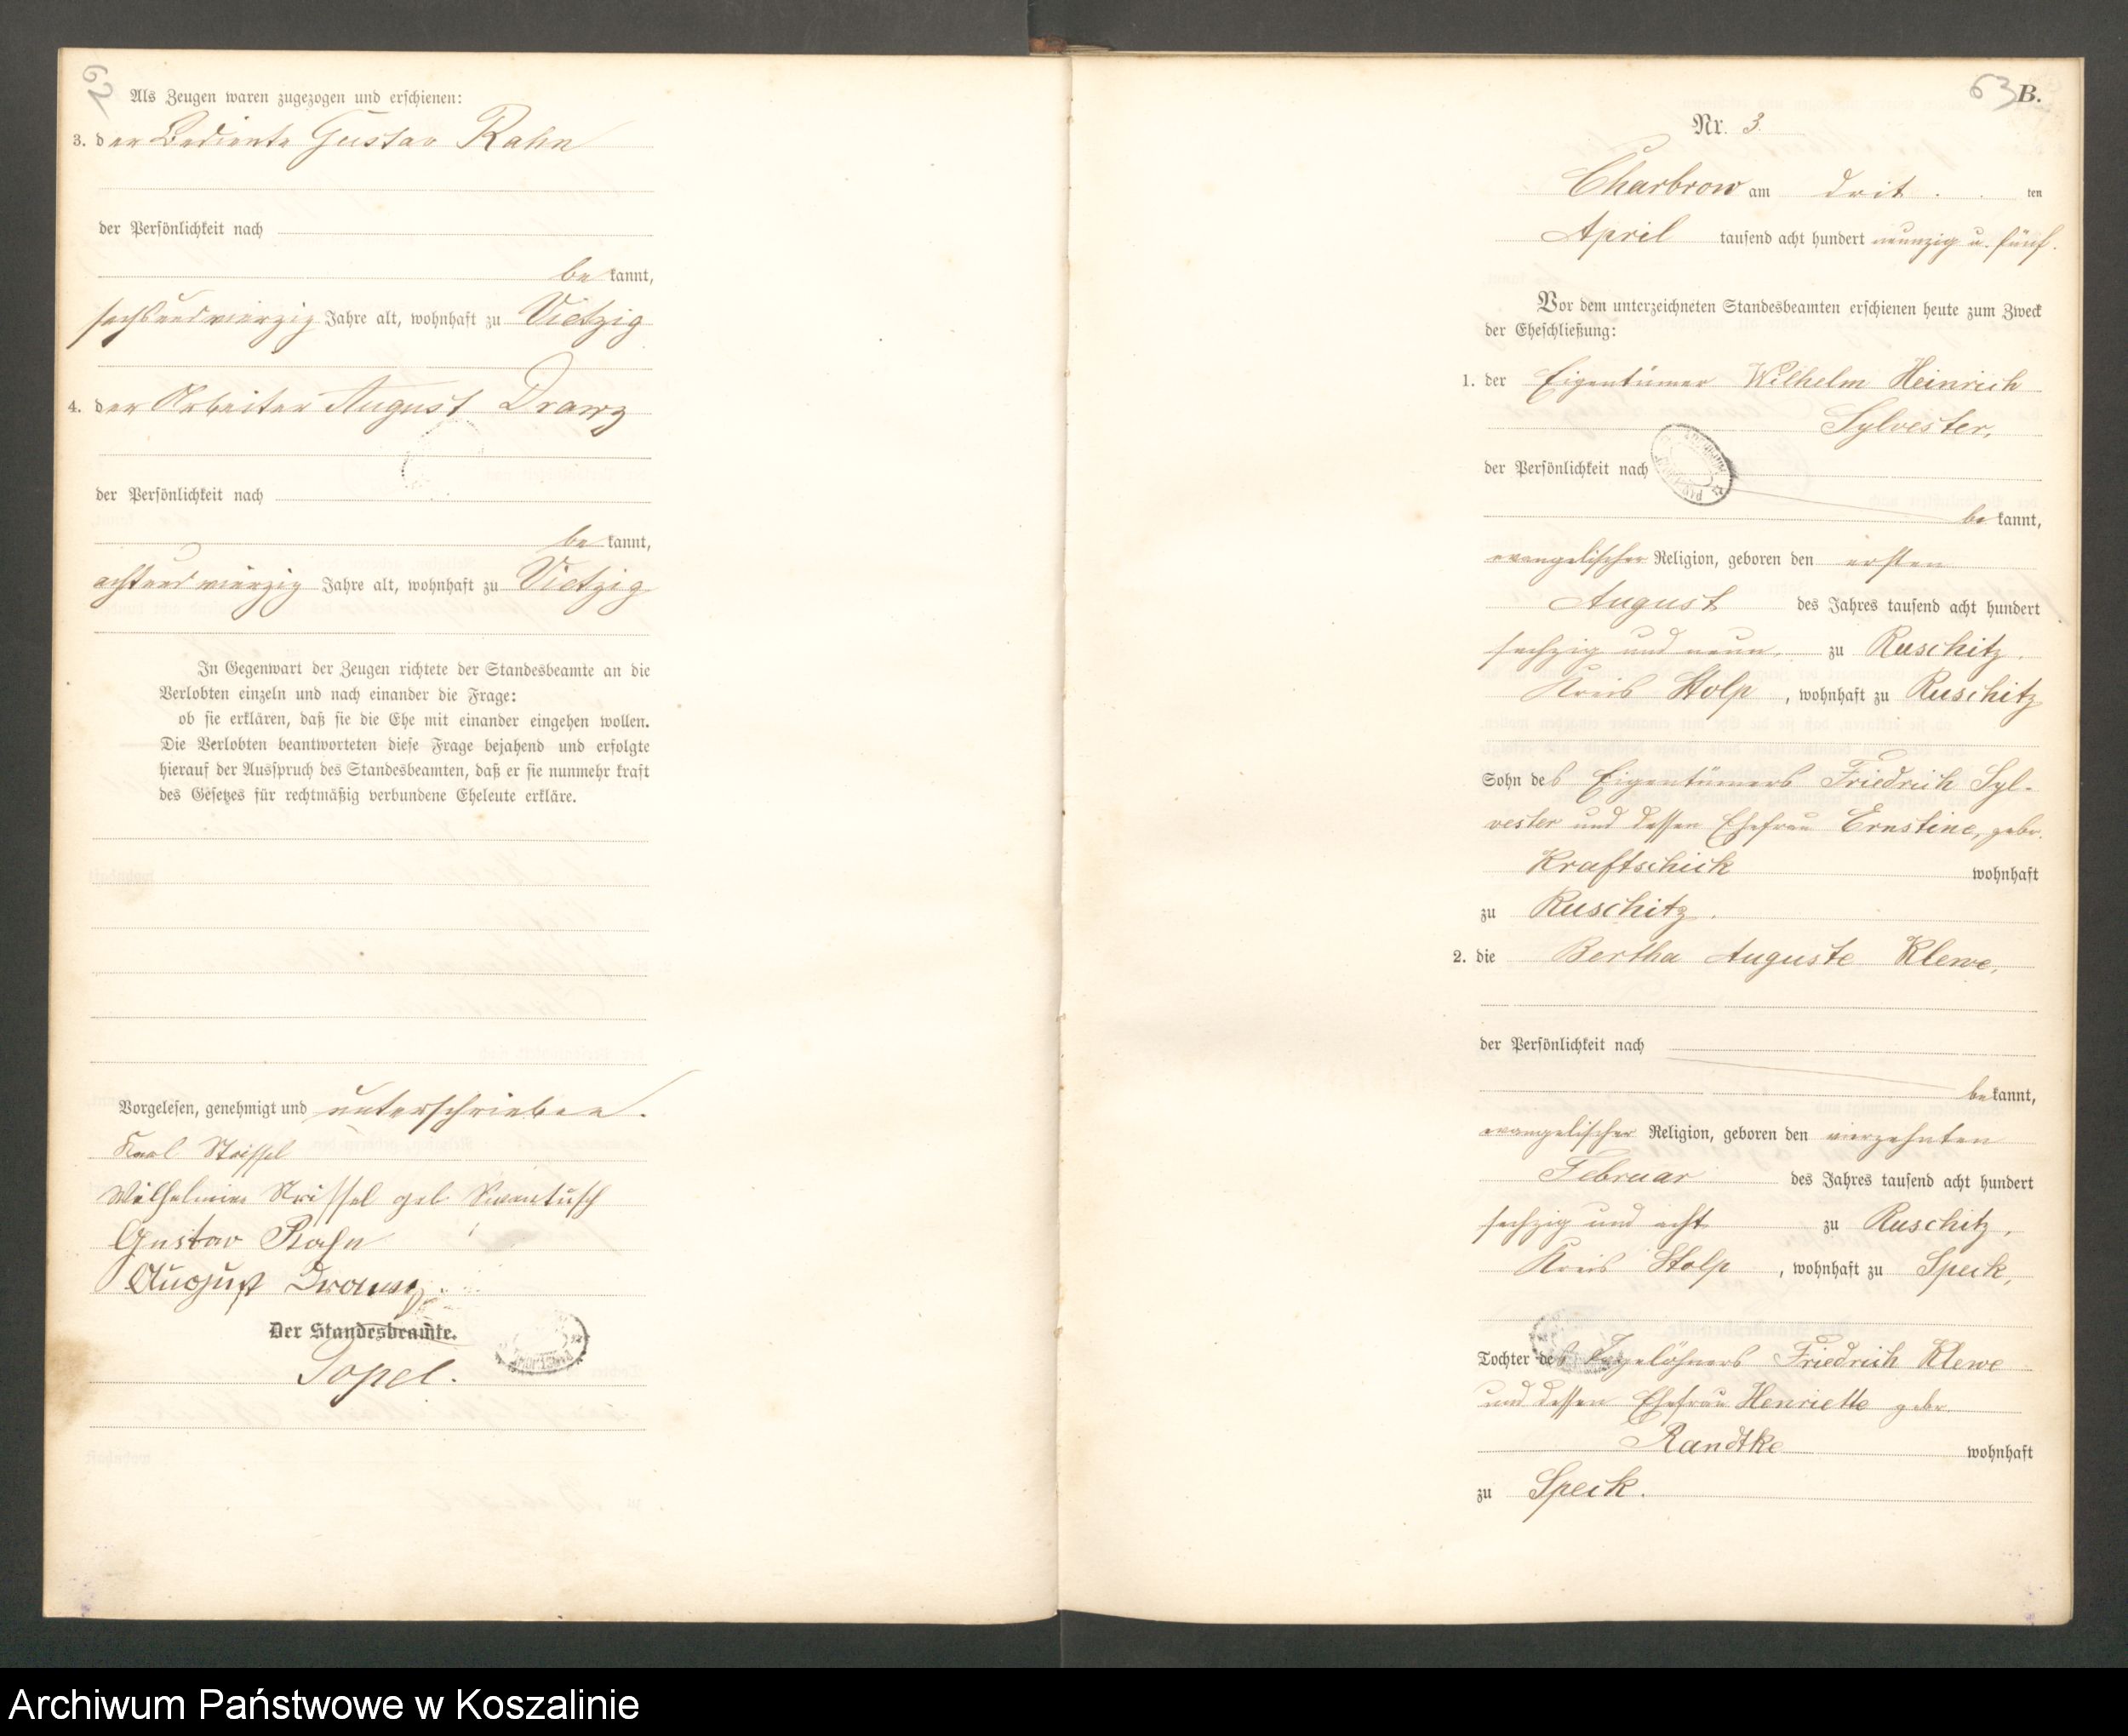 62
Als Zeugen waren zugezogen und erschienen:
3. der Bediente Gustav Rahn
der Persönlichkeit nach
bekannt,
sechsundvierzig Jahre alt, wohnhaft zu Vietzig
4. der Arbeiter August Drawz
der Persönlichkeit nach
bekannt,
achtundvierzig Jahre alt, wohnhaft zu Vietzig
In Gegenwart der Zeugen richtete der Standesbeamte an die
Verlobten einzeln und nach einander die Frage:
ob sie erklären, daß sie die Ehe mit einander eingehen wollen.
Die Verlobten beantworteten diese Frage bejahend und erfolgte
hierauf der Ausspruch des Standesbeamten, daß er sie nunmehr kraft
des Gesetzes für rechtmäßig verbundene Eheleute erkläre.
Vorgelesen, genehmigt und unterschrieben.
Karl
Wilhelmine geb.
Gustav Rahn
August Drawz.
Der Standesbeamte.
Topel.
63 B.
Nr. 3.
Charbrow am drit ten
April tausend acht hundert neunzig u. fünf.
Vor dem unterzeichneten Standesbeamten erschienen heute zum Zweck
der Eheschließung:
1. der Eigentümer Wilhelm Heinrich
Sylvester,
der Persönlichkeit nach
bekannt,
evangelischer Religion, geboren den ersten
August des Jahres tausend acht hundert
sechzig und neun. zu Ruschitz.
Kreis Stolp, wohnhaft zu Ruschitz
Sohn des Eigentümers Friedrich Syl-
vester und dessen Ehefrau Ernstine, gebr.
Kraftschick wohnhaft
zu Ruschitz.
2. die Bertha Auguste Klewe,
der Persönlichkeit nach
bekannt,
evangelischer Religion, geboren den vierzehnten
Februar des Jahres tausend acht hundert
sechzig und acht zu Ruschitz,
Kreis Stolp, wohnhaft zu Speck,
Tochter des Tagelöhners Friedrich Klewe
und dessen Ehefrau Henriette gebr.
Randtke wohnhaft
zu Speck.
Archiwum Państwowe w Koszalinie